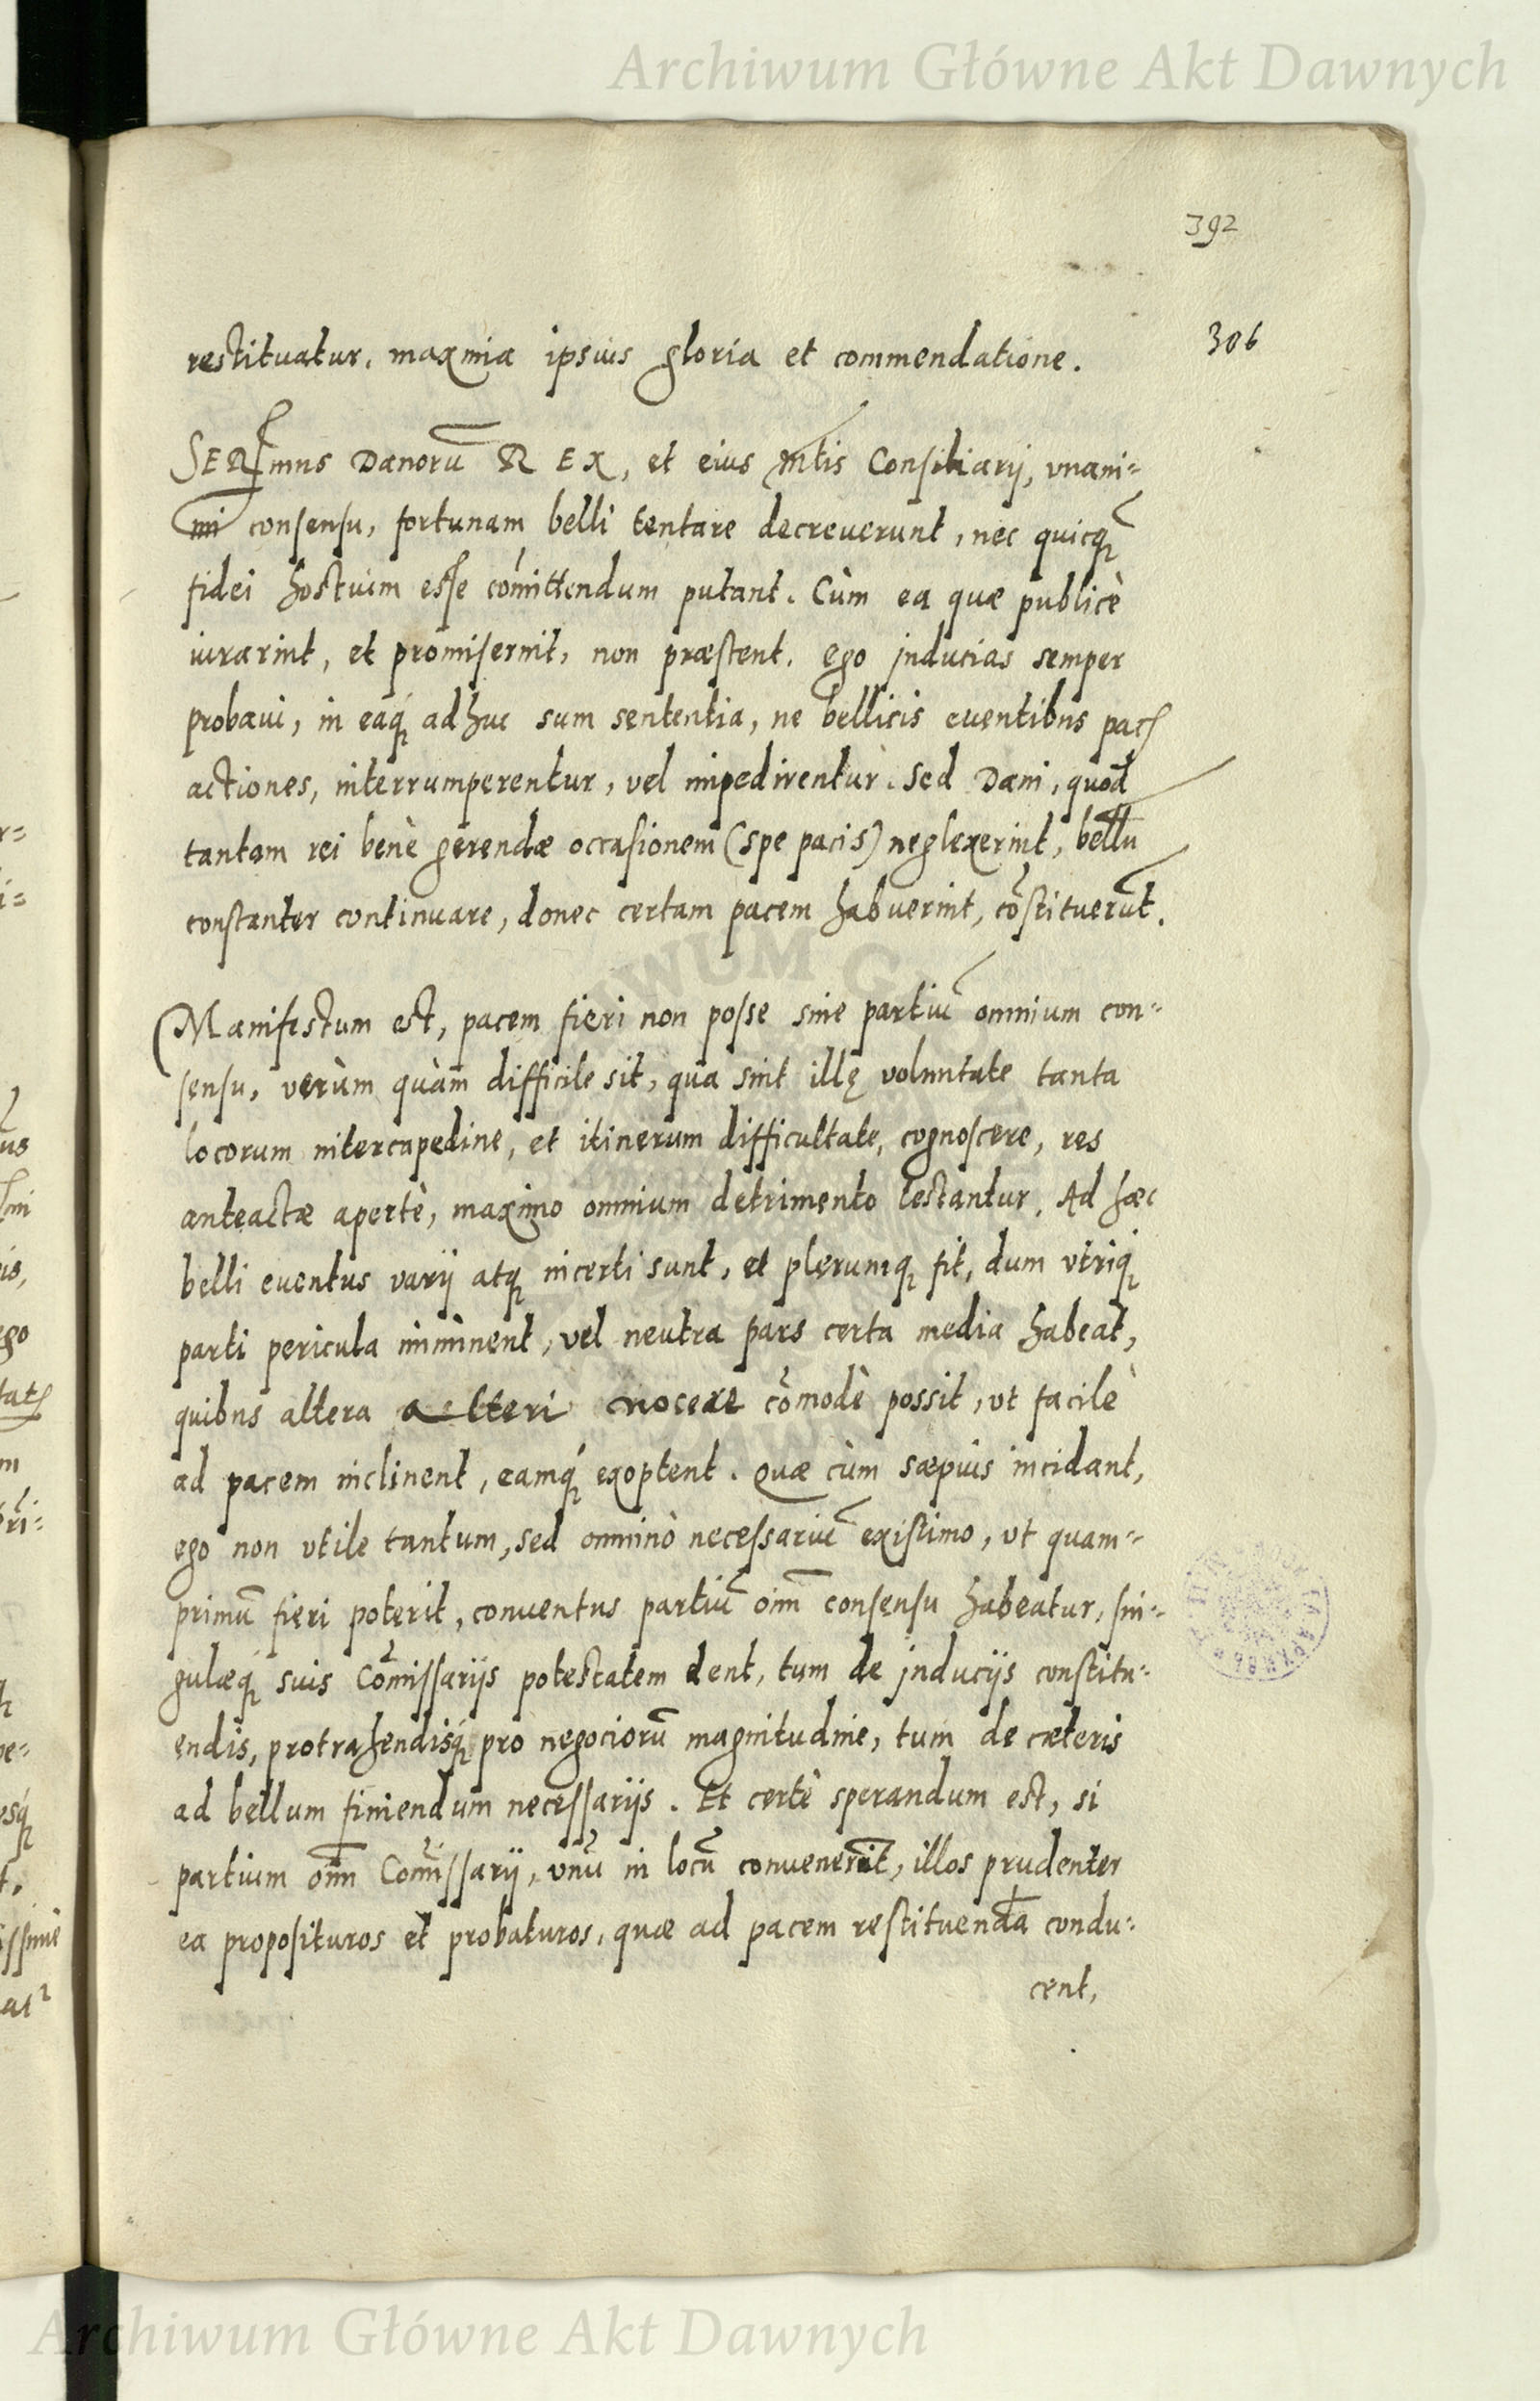 Archiwum Główne Akt Dawnych
392
306
restituatur, maxima ipsius gloria et commendatione.
SERmus Danorū REX, et eius Mtis Consiliarij, vnani-
mi consensu, fortunam belli tentare decreuerunt, nec quicq̄
fidei hostium esse com̄ittendum putant. Cùm ea quæ publicè
iurarint, et promiserint, non præstent. ego jnducias semper
probaui, in eaq́ adhuc sum sententia, ne bellicis euentibus pacis
actiones, interrumperentur, vel impedirentur. Sed Dani, quod
tantam rei benè gerendæ occasionem (spe pacis) neglexerint, bellū
constanter continuare, donec certam pacem habuerint, cōstituerūt.
Manifestum est, pacem fieri non posse sine partiū omnium con-
sensu, verùm quàm difficile sit, qua sint illę voluntate tanta
locorum intercapedine, et itinerum difficultate, cognoscere, res
anteactæ apertè, maximo omnium detrimento testantur. Ad hæc
belli euentus varij atq incerti sunt, et plerumq fit, dum vtriq́
parti pericula imminent, vel neutra pars certa media habeat,
quibus altera alteri nocere cōmodè possit, vt facilè
ad pacem inclinent, eamq́ exoptent. Quæ cùm sæpius incidant,
ego non vtile tantum, sed omninò necessariū existimo, vt quam-
primū fieri poterit, conuentus partiū oim̄ consensu habeatur, sin-
gulæq́ suis Com̄issarijs potestatem dent, tum de jnducijs constitu-
endis, protrahendisq́ pro negociorū magnitudine, tum de cæteris
ad bellum finiendum necessarijs. Et certè sperandum est, si
partium oīm Com̄issarij, vnū in locū conuenerīt, illos prudenter
ea proposituros et probaturos, quæ ad pacem restituendā condu-
cent,
Archiwum Główne Akt Dawnych